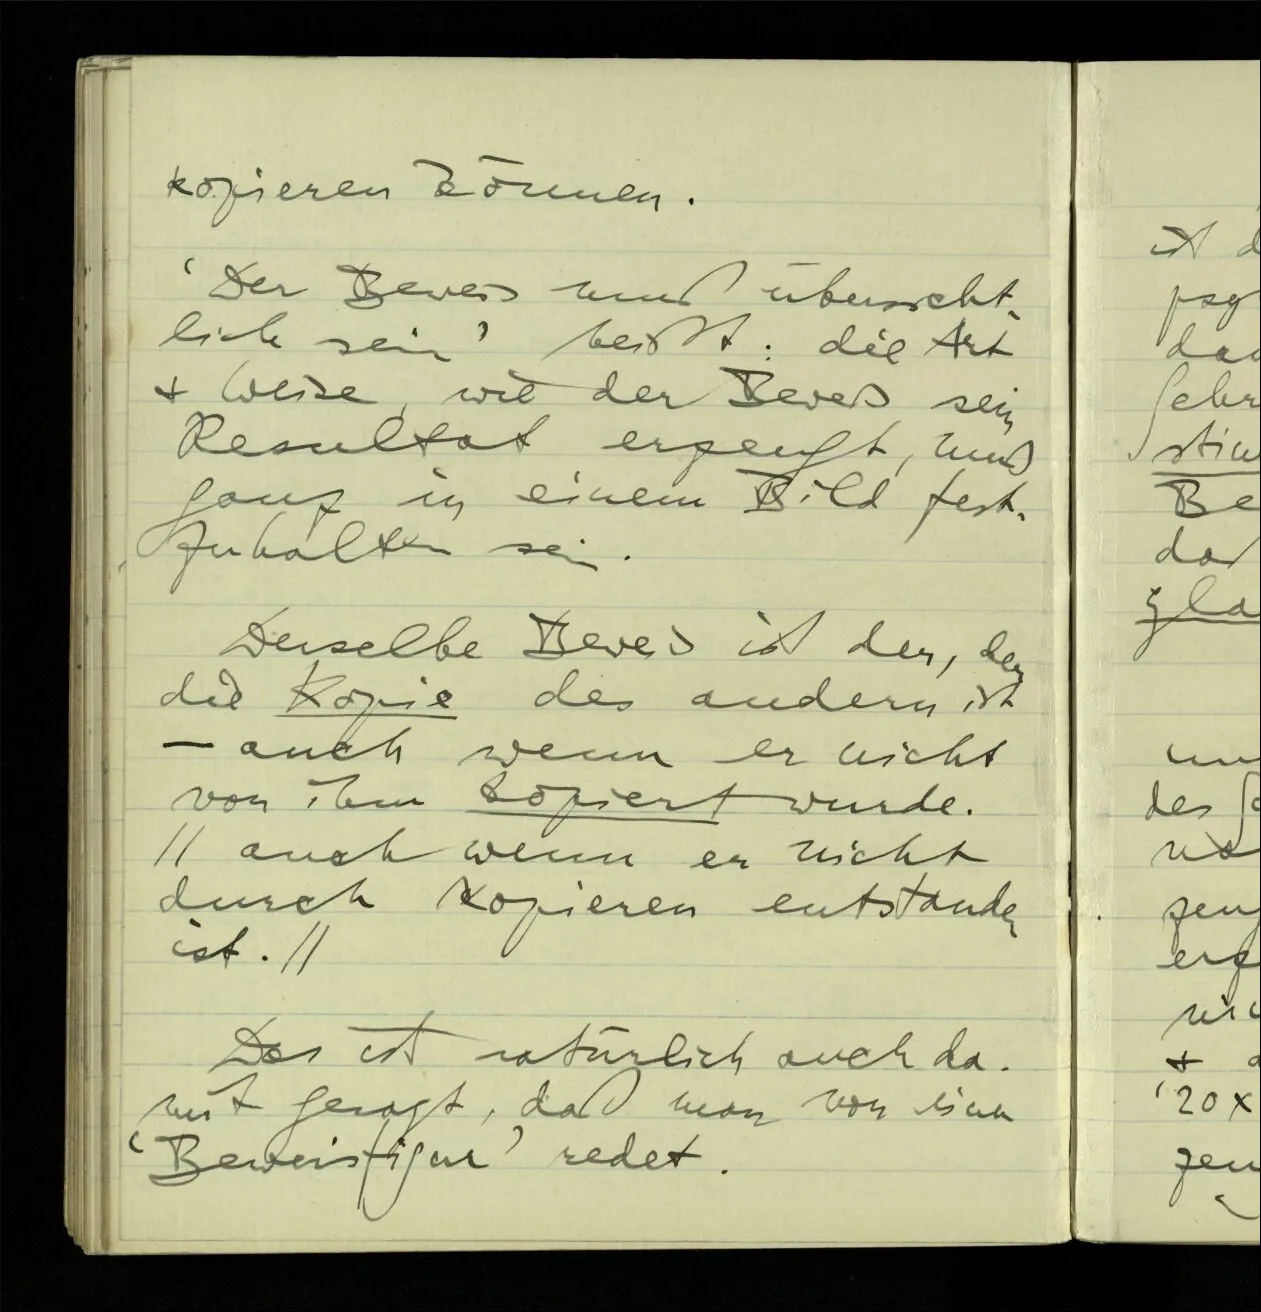 kopieren können.
'Der Beweis muß übersicht-
lich sein' heißt: die Art
& Weise, wie der Beweis sein
Resultat erzeugt, muß
ganz in einem Bild fest-
zuhalten sein.
Derselbe Beweis ist der, der
die Kopie des andern ist
— auch wenn er nicht
von ihm kopiert wurde.
// auch wenn er nicht
durch Kopieren entstanden
ist. //
Das ist natürlich auch da-
mit gesagt, daß man von einer
'Beweisfigur' redet.
ist d
psy
da
stim
Be
daß
gla
des
zeug
& a
'20x
zeu